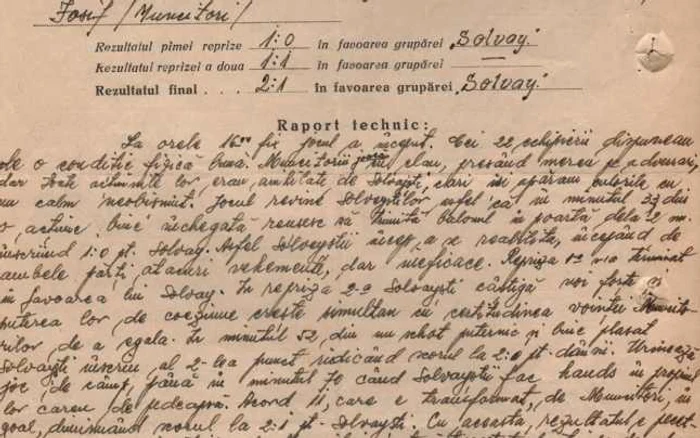 Iosif /Muncitori/
Rezultatul pimei reprize 1:0 în favoarea grupărei „Solvay."
Rezultatul reprizei a doua 1:1 în favoarea grupărei
Rezultatul final . . . 2:1 în favoarea grupărei „Solvay."
Raport technic:
La orele 16⁰⁰ fix jocul a început. Cei 22 echipieri dispuneau
de o condiție fizică bună. Muncitorii joacă cu elan, presând mereu pe adversar,
dar toate acțiunile lor, erau anihilate de Solvayști, cari își apărau culorile cu
un calm neobișnuit. Jocul revine Solvayștilor astfel că în minutul 33 din
o acțiune bine închegată reușesc să trimită balonul în poartă dela 2 m.
înscriind 1:0 pt. Solvay. Astfel Solvayștii încep a se reabilita, începând de
ambele părți atacuri vehemente, dar ineficace. Repriza Iª s'a terminat
în favoarea lui Solvay. În repriza 2ª Solvayști câștigă noi forțe și
puterea lor de coeziune crește simultan cu certitudinea voinței Muncito-
rilor, de a egala. În minutul 52 din un șhot puternic și bine plasat
Solvayști înscriu al 2-lea punct ridicând scorul la 2:0 pt. dânșii. Urmează
joc de câmp, până în minutul 70 când Solvayștii fac hands în propriul
lor careu de pedeapsă. Acord 11, care e transformat, de Muncitori, în
goal, diminuând scorul la 2:1 pt. Solvayști. Cu aceasta, rezultatul e pecet